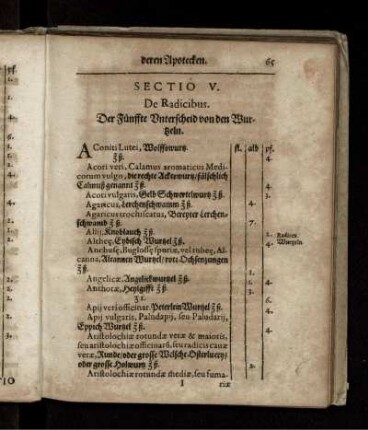 deren Apotecken. 65
SECTIO V.
De Radicibus.
Der Fünffte Vnterscheid von den Wur-
tzeln.
fl. alb pf.
Aconiti Lutei, Wolffswurtz
ʒß. 4.
Acori veri, Calamus aromaticus Medi-
corum vulgo, die rechte Ackerwurtz/fälschlich
Calmuß genannt ʒß. 4.
Acori vulgaris, Gelb Schwertelwurtz ʒß.
Agaricus, Lerchenschwamm ʒß. 2.
Agaricus trochiscatus, Bereyter Lerchen-
schwamb ʒß. 7.
Allij, Knoblauch ʒß. 2. Radices
Altheę, Eybisch Wurtzel ʒß. 4. Wurzeln
Anchusę, Buglossę spuriæ, vel rubeę, Al-
canna, Alcannen Wurtzel/rote Ochsenzungen
ʒß.
Angelicæ, Angelickwurtzel ʒß.
Anthoræ, Heylgifft ʒß. 3.
ʒ1.
Apij veri officinar. Peterlein Wurtzel ʒß. 4.
Apij vulgaris, Paludapij, seu Paludarij,
Eppich Wurtzel ʒß. 4.
Aristolochiæ rotundæ veræ & maioris,
seu aristolochiæ officinarū, seu radicis cauæ
veræ, Runde/oder grosse Welsche Osterlucey/
oder grosse Holwurtz ʒß. 2.
Aristolochiæ rotundæ mediæ, seu fuma-
I riæ